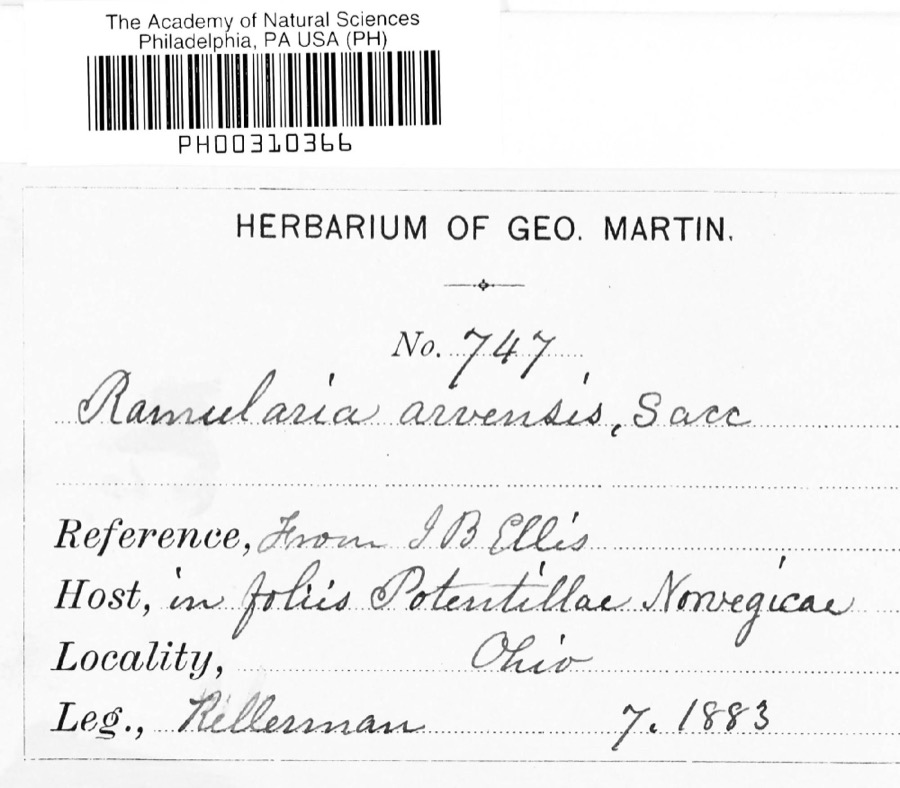 The Academy of Natural Sciences
Philadelphia, PA USA (PH)
PH00310366
HERBARIUM OF GEO. MARTIN.
No. 747
Ramularia arvensis, Sacc
Reference, From J B Ellis
Host, in foliis Potentillae Norvegicae
Locality, Ohio
Leg., Kellerman 7. 1883